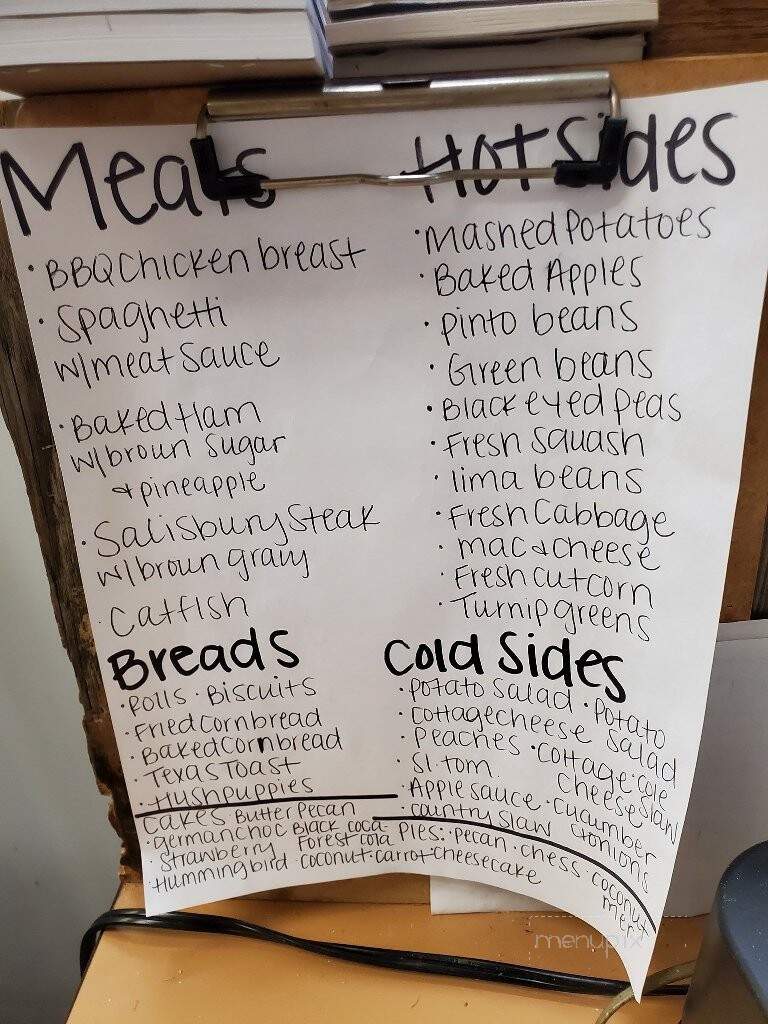 Meats
· BBQ Chicken breast
· Spaghetti
w/meat Sauce
· Baked Ham
w/broun Sugar
& pineapple
· Salisbury Steak
w/broun gravy
· Catfish
Breads
· Rolls · Biscuits
· Fried Cornbread
· Baked Cornbread
· Texas Toast
· Hushpuppies
Hot Sides
· Mashed Potatoes
· Baked Apples
· pinto beans
· Green beans
· Black eyed peas
· Fresh Squash
· lima beans
· Fresh Cabbage
· mac & cheese
· Fresh cut corn
· Turnip greens
Cold Sides
· potato Salad · Potato
· Cottage cheese Salad
· Peaches · Cottage · Cole
· Sl. tom. Cheese Slaw
· Apple Sauce · Cucumber
· Country Slaw & onions
Cakes Butter Pecan
· german choc Black coca- Pies: · pecan · chess · coconut
· Strawberry Forest cola mer
· Hummingbird · coconut · carrot · cheesecake
menupix